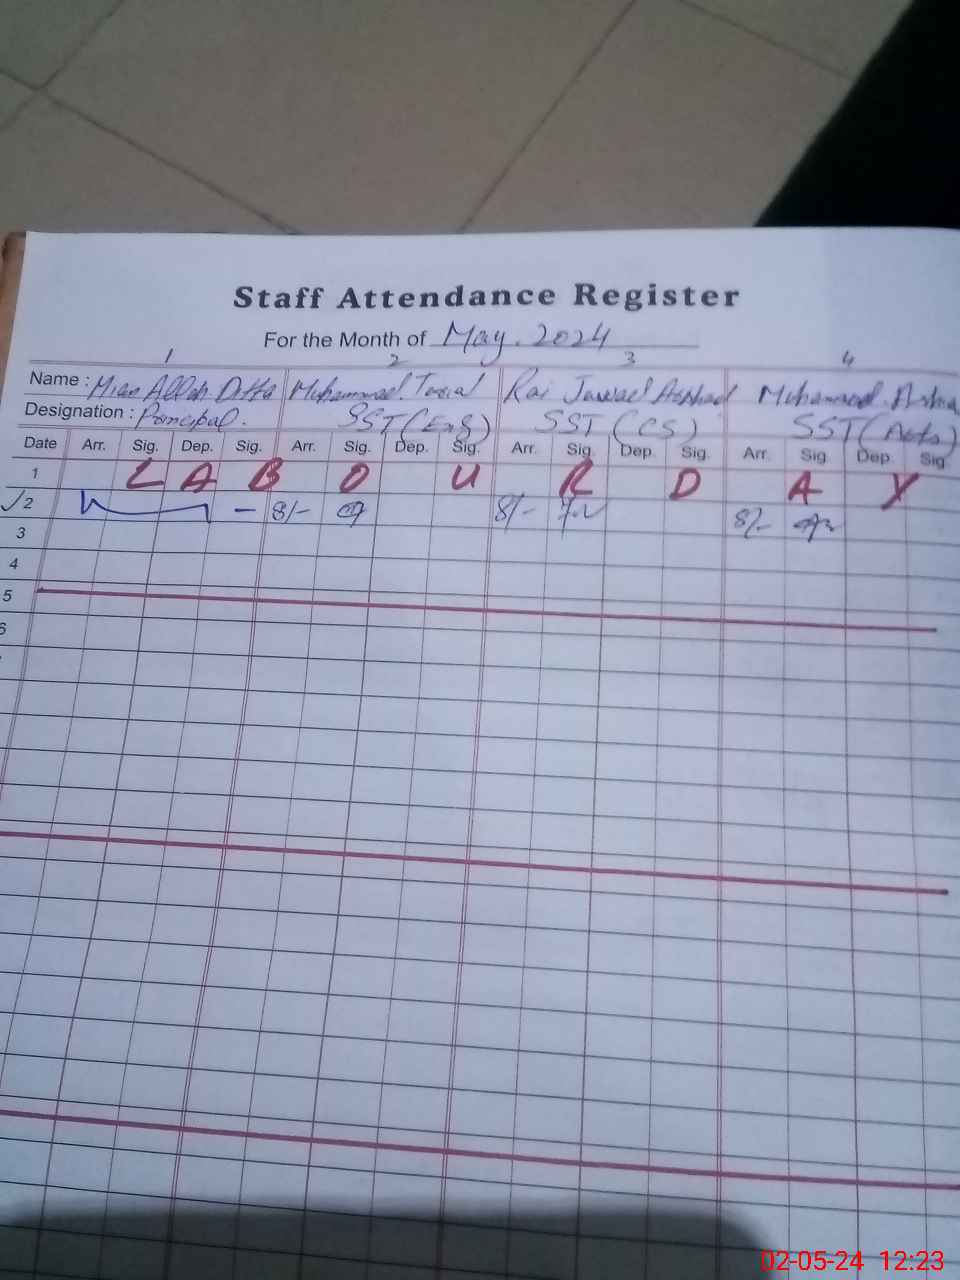 Staff Attendance Register
For the Month of May. 2024
1 2 3 4
Name : Mian Allah Ditta Muhammad. Tariq Rai Jawad Arshad Muhammad.
Designation : Principal. SST (Eng) SST (CS) SST (Arts)
Date Arr. Sig. Dep. Sig. Arr. Sig. Dep. Sig. Arr. Sig. Dep. Sig. Arr. Sig. Dep. Sig.
1 L A B O U R D A Y
2 8/- 8/- 8/-
3
4
5
6
02-05-24 12:23